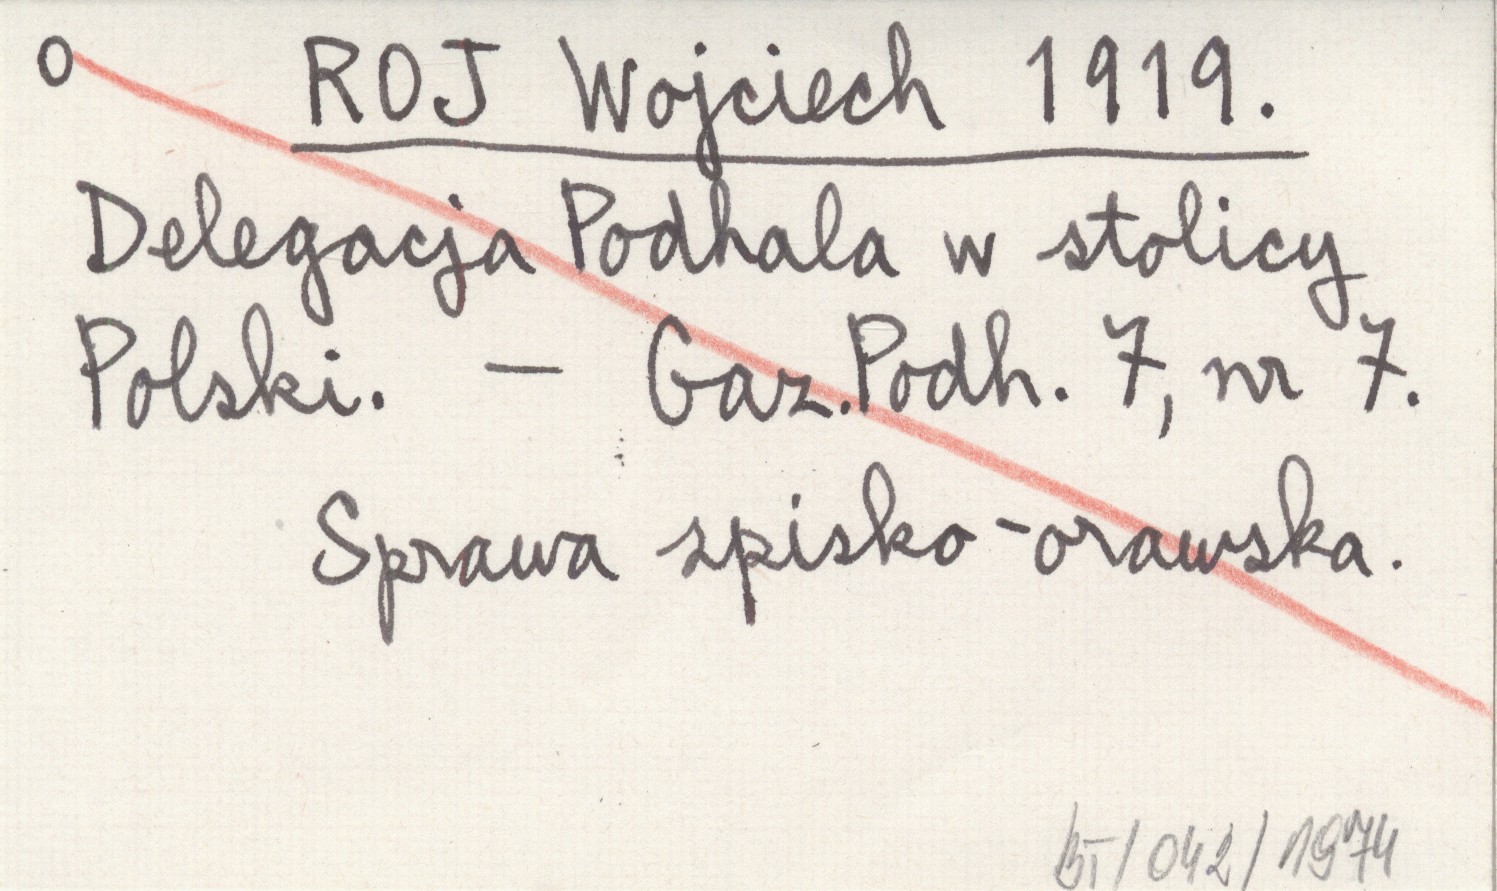 O ROJ Wojciech 1919.
Delegacja Podhala w stolicy
Polski. – Gaz. Podh. 7, nr 7.
Sprawa spisko-orawska.
BT/042/1974